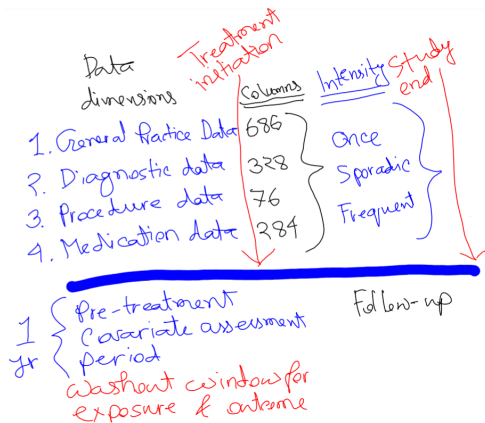 Treatment
initiation
Data
dimensions
Columns
Intensity
Study
end
1. General Practice Data 686
2. Diagnostic data 328
3. Procedure data 76
4. Medication data 284
Once
Sporadic
Frequent
1
yr
Pre-treatment
Covariate assessment
period
Follow-up
Washout window for
exposure & outcome